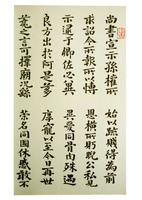 尚書宣示孫權所
求詔令所報所以博
示逮于卿佐必冀
良方出於阿是芻
蕘之言可擇廊廟況繇
始以疏賤得為前
恩橫所盼睨公私見
異愛同骨肉殊遇
厚寵以至今日再世
榮名同國休慼敢不